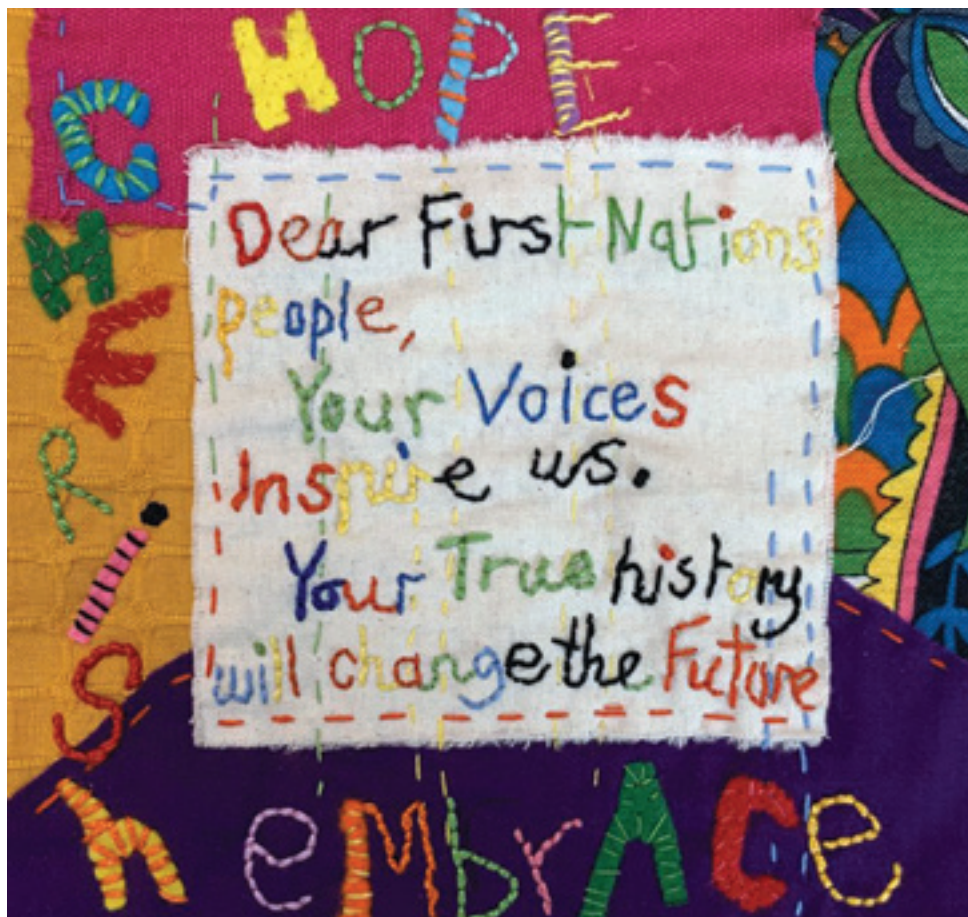 HOPE
CHERiSh
Dear First Nations
people,
Your Voices
Inspire us.
Your True history
will change the Future
embrAce